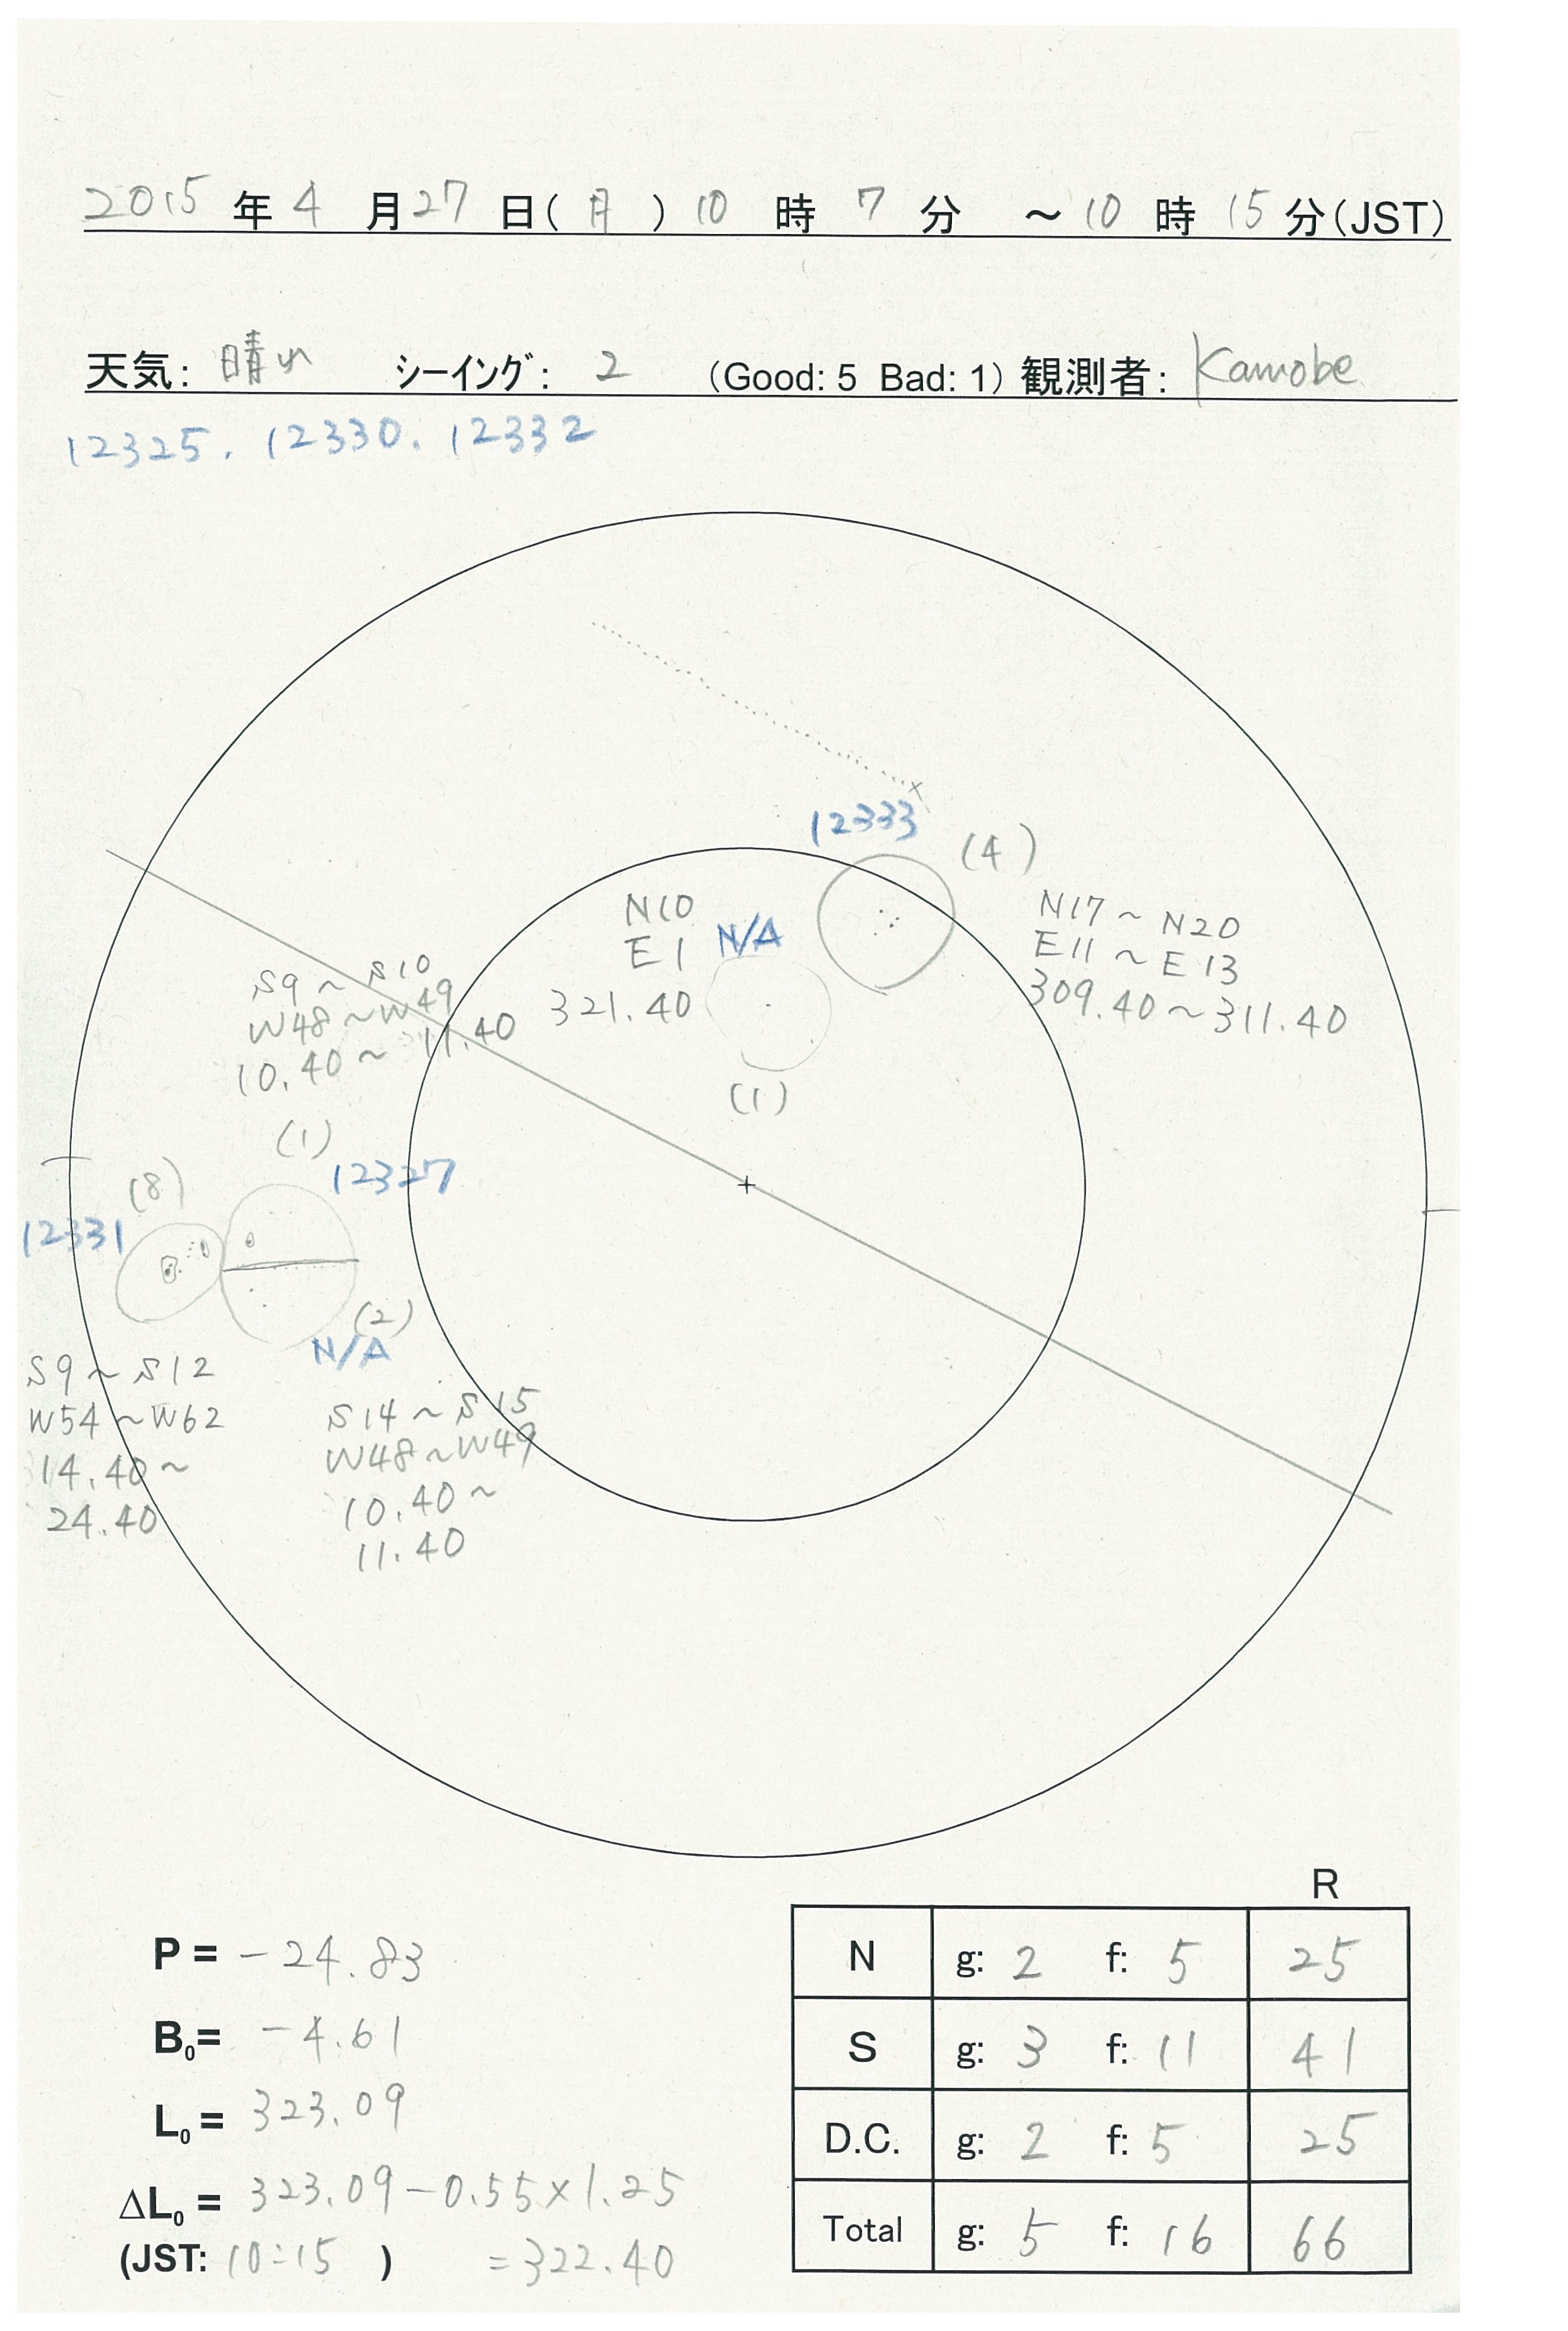 2015 年 4 月 27 日( 月 ) 10 時 7 分 ～ 10 時 15 分(JST)
天気: 晴れ シーイング: 2 (Good: 5 Bad: 1) 観測者: Kamobe
12325. 12330. 12332
12333 (4)
N17~N20
E11~E13
309.40~311.40
N10
E1
321.40
N/A
(1)
S9~S10
W48~W49
10.40~11.40
(1)
12327
(8)
12331
(2)
N/A
S9~S12
W54~W62
14.40~
24.40
S14~S15
W48~W49
10.40~
11.40
P = -24.83
B0= -4.61
L0 = 323.09
ΔL0 = 323.09-0.55×1.25
(JST: 10:15 ) =322.40
R
N g: 2 f: 5 25
S g: 3 f: 11 41
D.C. g: 2 f: 5 25
Total g: 5 f: 16 66